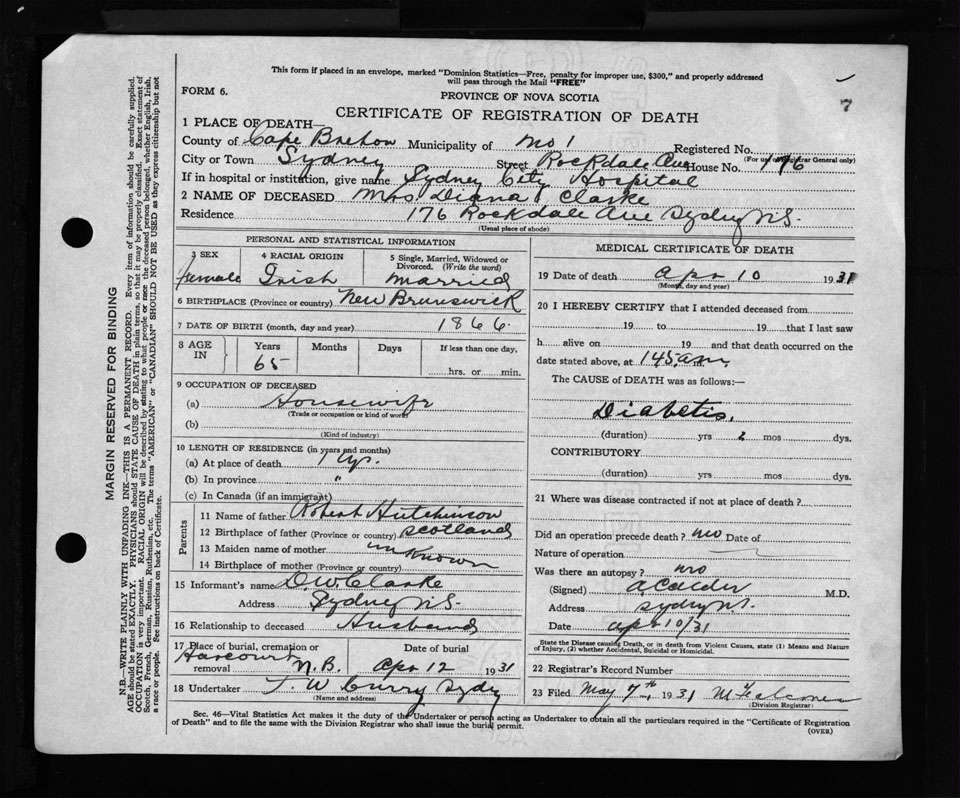 This form if placed in an envelope, marked "Dominion Statistics—Free, penalty for improper use, $300," and properly addressed
will pass through the Mail "FREE"
7
FORM 6.
PROVINCE OF NOVA SCOTIA
CERTIFICATE OF REGISTRATION OF DEATH
1 PLACE OF DEATH—
County of Cape Breton Municipality of No 1 Registered No.
(For use of Registrar General only)
City or Town Sydney Street Rockdale Ave House No. 176
If in hospital or institution, give name Sydney City Hospital
2 NAME OF DECEASED Mrs Diana Clarke
Residence 176 Rockdale Ave Sydney N.S.
(Usual place of abode)
PERSONAL AND STATISTICAL INFORMATION
3 SEX female
4 RACIAL ORIGIN Irish
5 Single, Married, Widowed or
Divorced. (Write the word)
married
6 BIRTHPLACE (Province or country) New Brunswick
7 DATE OF BIRTH (month, day and year) 1866.
8 AGE IN Years Months Days If less than one day,
65 hrs. or min.
9 OCCUPATION OF DECEASED
(a) Housewife
(Trade or occupation or kind of work)
(b)
(Kind of industry)
10 LENGTH OF RESIDENCE (in years and months)
(a) At place of death 1 yr.
(b) In province "
(c) In Canada (if an immigrant)
Parents
11 Name of father Robert Hutchinson
12 Birthplace of father (Province or country) Scotland
13 Maiden name of mother unknown
14 Birthplace of mother (Province or country)
15 Informant's name D.W. Clarke
Address Sydney N.S.
16 Relationship to deceased Husband
17 Place of burial, cremation or removal Harcourt N.B. Date of burial Apr 12 1931
18 Undertaker W Curry Sydney
(Name and address)
MEDICAL CERTIFICATE OF DEATH
19 Date of death Apr 10 1931
(Month, day and year)
20 I HEREBY CERTIFY that I attended deceased from
19 to 19 that I last saw
h alive on 19 and that death occurred on the
date stated above, at 1 45 a.m.
The CAUSE of DEATH was as follows:—
Diabetis.
(duration) yrs 2 mos dys.
CONTRIBUTORY
(duration) yrs mos dys.
21 Where was disease contracted if not at place of death?
Did an operation precede death? no Date of
Nature of operation
Was there an autopsy? no
(Signed) A Calder M.D.
Address Sydney N.S.
Date Apr 10/31
State the Disease causing Death, or in death from Violent Causes, state (1) Means and Nature
of Injury, (2) whether Accidental, Suicidal or Homicidal.
22 Registrar's Record Number
23 Filed May 7th, 1931
(Division Registrar)
Sec. 46—Vital Statistics Act makes it the duty of the Undertaker or person acting as Undertaker to obtain all the particulars required in the "Certificate of Registration
of Death" and to file the same with the Division Registrar who shall issue the burial permit.
(OVER)
MARGIN RESERVED FOR BINDING
N.B.—WRITE PLAINLY WITH UNFADING INK—THIS IS A PERMANENT RECORD. Every item of information should be carefully supplied.
AGE should be stated EXACTLY. PHYSICIANS should STATE CAUSE OF DEATH in plain terms, so that it may be properly classified. Exact statement of
OCCUPATION is very important. RACIAL ORIGIN will be described by stating to what people or race the deceased person belonged, whether English, Irish,
Scotch, French, German, Russian, Ruthenian, etc. The terms "AMERICAN" or "CANADIAN" SHOULD NOT BE USED as they express citizenship but not
a race or people. See instructions on back of Certificate.